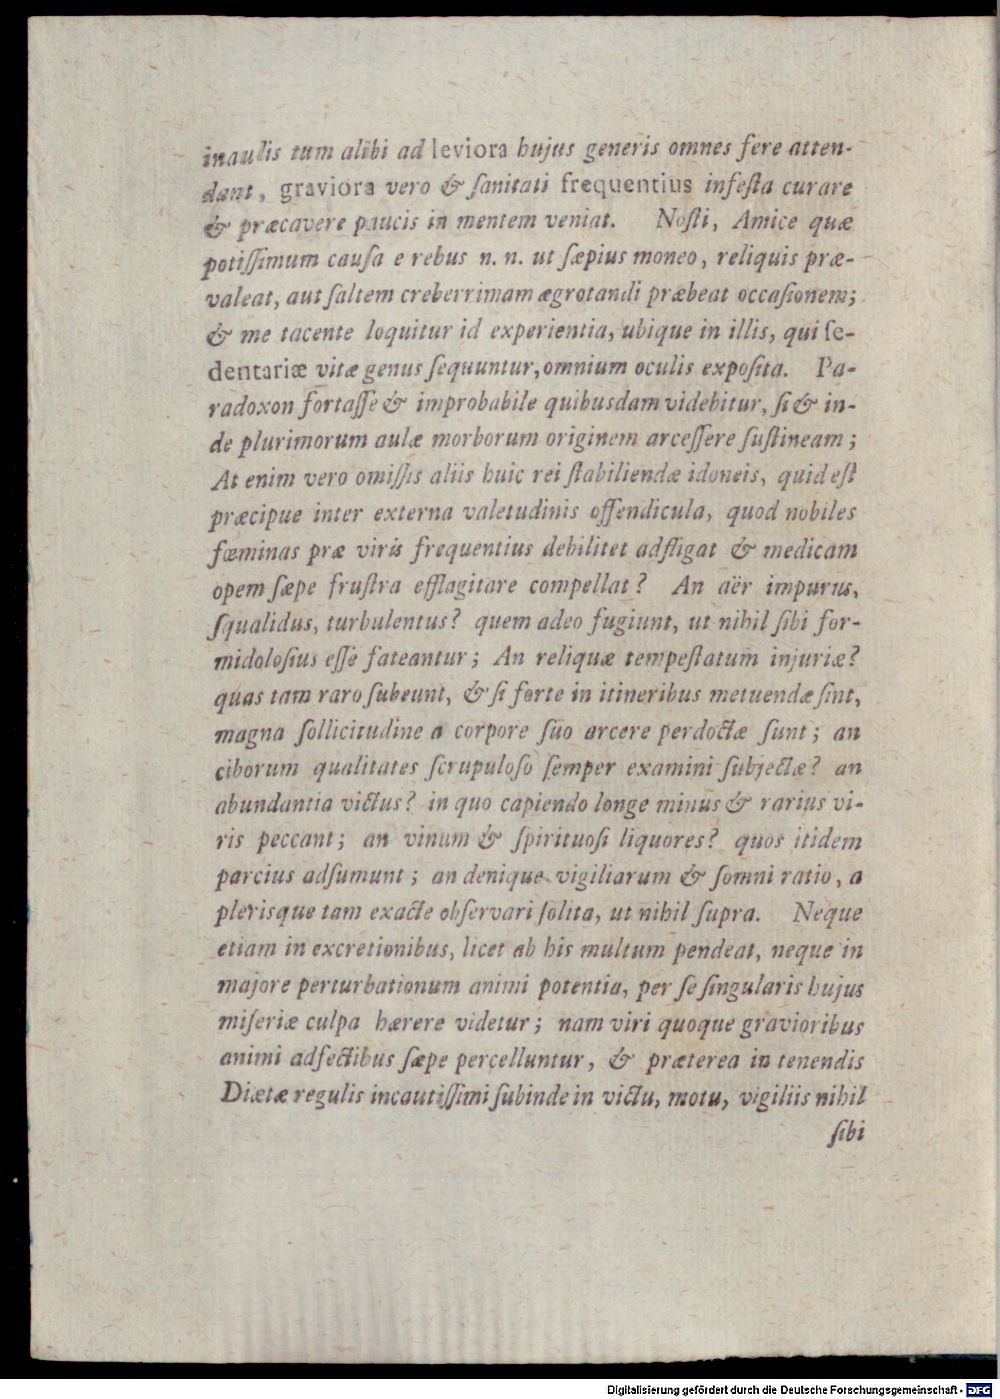 in aulis tum alibi ad leviora hujus generis omnes fere atten-
dant, graviora vero & ſanitati frequentius infeſta curare
& præcavere paucis in mentem veniat. Noſti, Amice quæ
potiſſimum cauſa e rebus n. n. ut ſæpius moneo, reliquis præ-
valeat, aut ſaltem creberrimam ægrotandi præbeat occaſionem;
& me tacente loquitur id experientia, ubique in illis, qui ſe-
dentariæ vitæ genus ſequuntur, omnium oculis expoſita. Pa-
radoxon fortaſſe & improbabile quibusdam videbitur, ſi & in-
de plurimorum aulæ morborum originem arceſſere ſuſtineam;
At enim vero omiſſis aliis huic rei ſtabiliendæ idoneis, quid eſt
præcipue inter externa valetudinis offendicula, quod nobiles
fœminas præ viris frequentius debilitet adfligat & medicam
opem ſæpe fruſtra efflagitare compellat? An aër impurus,
ſqualidus, turbulentus? quem adeo fugiunt, ut nihil ſibi for-
midoloſius eſſe fateantur; An reliquæ tempeſtatum injuriæ?
quas tam raro ſubeunt, & ſi forte in itineribus metuendæ ſint,
magna ſollicitudine a corpore ſuo arcere perdoctæ ſunt; an
ciborum qualitates ſcrupuloſo ſemper examini ſubjectæ? an
abundantia victus? in quo capiendo longe minus & rarius vi-
ris peccant; an vinum & ſpirituoſi liquores? quos itidem
parcius adſumunt; an denique vigiliarum & ſomni ratio, a
plerisque tam exacte obſervari ſolita, ut nihil ſupra. Neque
etiam in excretionibus, licet ab his multum pendeat, neque in
majore perturbationum animi potentia, per ſe ſingularis hujus
miſeriæ culpa hærere videtur; nam viri quoque gravioribus
animi adfectibus ſæpe percelluntur, & præterea in tenendis
Diætæ regulis incautiſſimi ſubinde in victu, motu, vigiliis nihil
ſibi
Digitalisierung gefördert durch die Deutsche Forschungsgemeinschaft - DFG